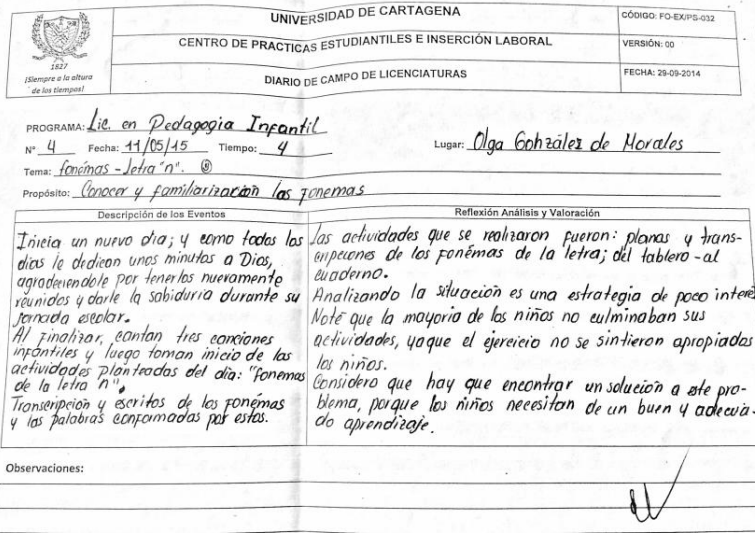 UNIVERSIDAD DE CARTAGENA
CENTRO DE PRACTICAS ESTUDIANTILES E INSERCIÓN LABORAL
DIARIO DE CAMPO DE LICENCIATURAS
CÓDIGO: FO-EX/PS-032
VERSIÓN: 00
FECHA: 29-09-2014
1827
¡Siempre a la altura
de los tiempos!
PROGRAMA: Lic. en Pedagogia Infantil
N° 4 Fecha: 11/05/15 Tiempo: 4 Lugar: Olga González de Morales
Tema: fonémas - letra "n".
Propósito: Conocer y familiarización los fonemas
Descripción de los Eventos
Inicia un nuevo dia; y como todos los
dias le dedican unos minutos a Dios,
agradeciendole por tenerlos nuevamente
reunidos y darle la sabiduria durante su
jornada escolar.
Al finalizar, cantan tres canciones
infantiles y luego toman inicio de las
actividades planteadas del dia: "fonemas
de la letra "n".
Transcripción y escritos de los fonémas
y las palabras conformadas por estos.
Reflexión Análisis y Valoración
las actividades que se realizaron fueron: planas y trans-
cripciones de los fonémas de la letra; del tablero - al
cuaderno.
Analizando la situación es una estrategia de poco interés
Noté que la mayoria de los niños no culminaban sus
actividades, yaque el ejercicio no se sintieron apropiados
los niños.
Considero que hay que encontrar un solución a este pro-
blema, porque los niños necesitan de un buen y adecua-
do aprendizaje.
Observaciones: